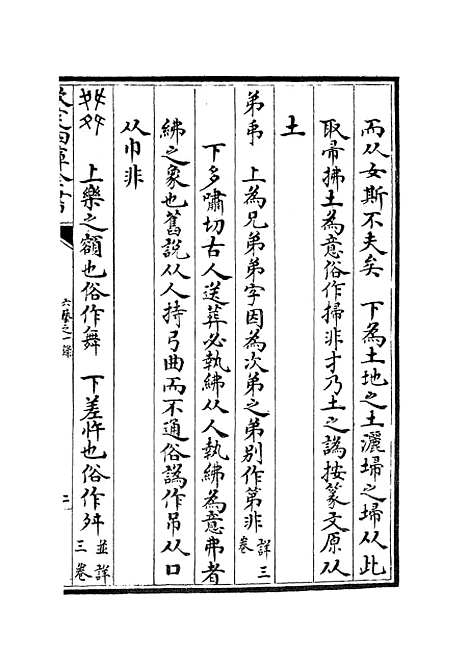 而从女斯不夫矣　下為土地之土灑埽之埽从此
取帚拂土為意俗作掃非才乃土之譌按篆文原从
土
弟𢎨　上為兄弟弟字因為次弟之弟别作第非詳三卷
下多嘯切古人送葬必執紼从人執紼為意弗者
紼之象也舊說从人持弓曲而不通俗譌作吊从口
从巾非
上樂之額也俗作舞　下差忤也俗作舛並詳三卷
欽定四庫全書
六藝之一録
二